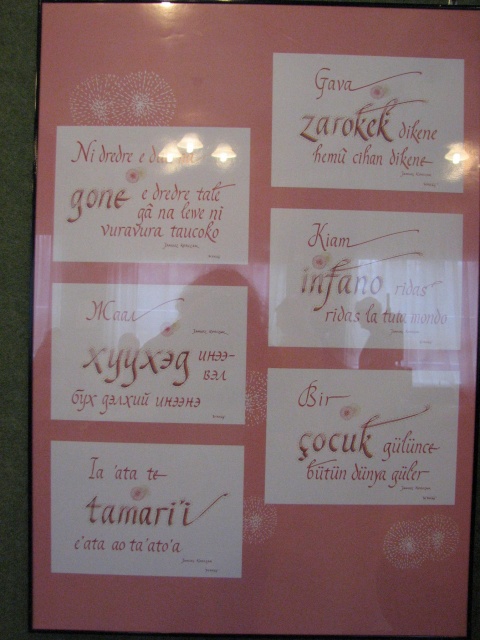 Ni dredre e
gone e dredre talé
qã na lewe ni
vuravura taucoko
Жаал
хүүхэд инээ-
вэл
бүх дэлхий инээнэ
Ia 'ata te
tamari'i
e'ata ao ta'ato'a
Gava
zarokek dikene
hemû cihan dikene
Kiam
infano ridas
ridas la tuta mondo
Bir
çocuk gülünce
bütün dünya güler